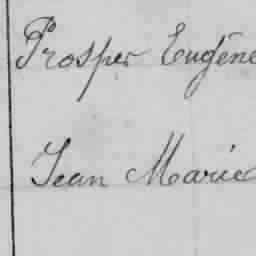 Prosper Eugène
Jean Marie